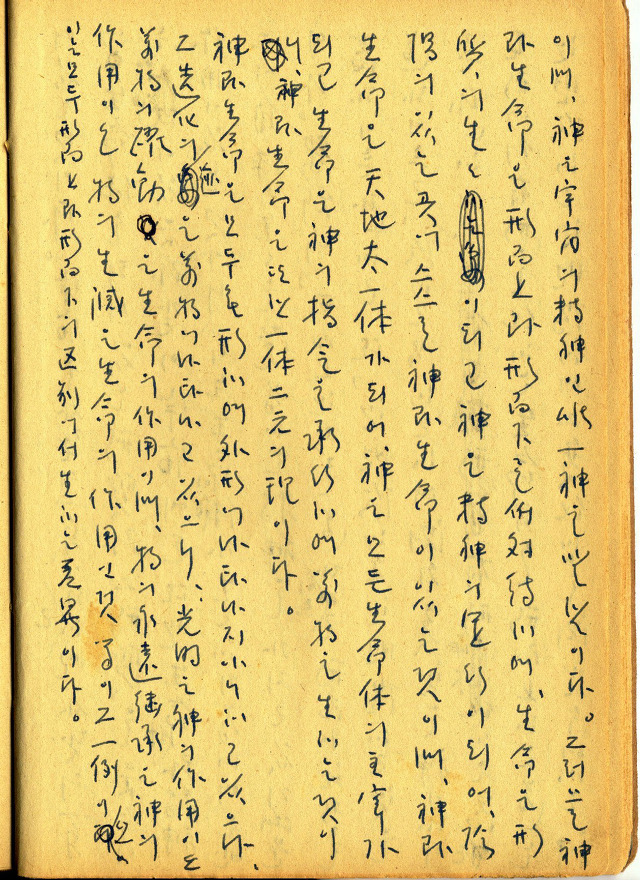 이며, 神은 宇宙의 精神인 唯一神은 것이다. 그러므로 神
과 生命은 形而上과 形而下로 相対待하며, 生命은 形
質의 生 이되고 神은 精神의 이되어, 陰
陽이 있는 곳에 스스로 神과 生命이 있는 것이며, 神과
生命은 天地太一体가 되어, 神은 모든 生命体의 主宰가
되고 生命은 神의 指令을 承行하며 萬物은 生하는 것이
니, 神과 生命은 으로 一体二元의 現이다.
神과 生命은 모두 形하며 外形에 나타나지 아니하고 있으나,
그 造化의 은 萬物에 나타나고 있으니, 光明은 神의 作用이요
萬物의 動은 生命의 作用이며, 物의 永遠継承은 神의
作用이고 物의 生滅은 生命의 作用인것 等이 그 一例이
있는 모두 形而上과 形而下의 区別에서 生하는 差異이다.